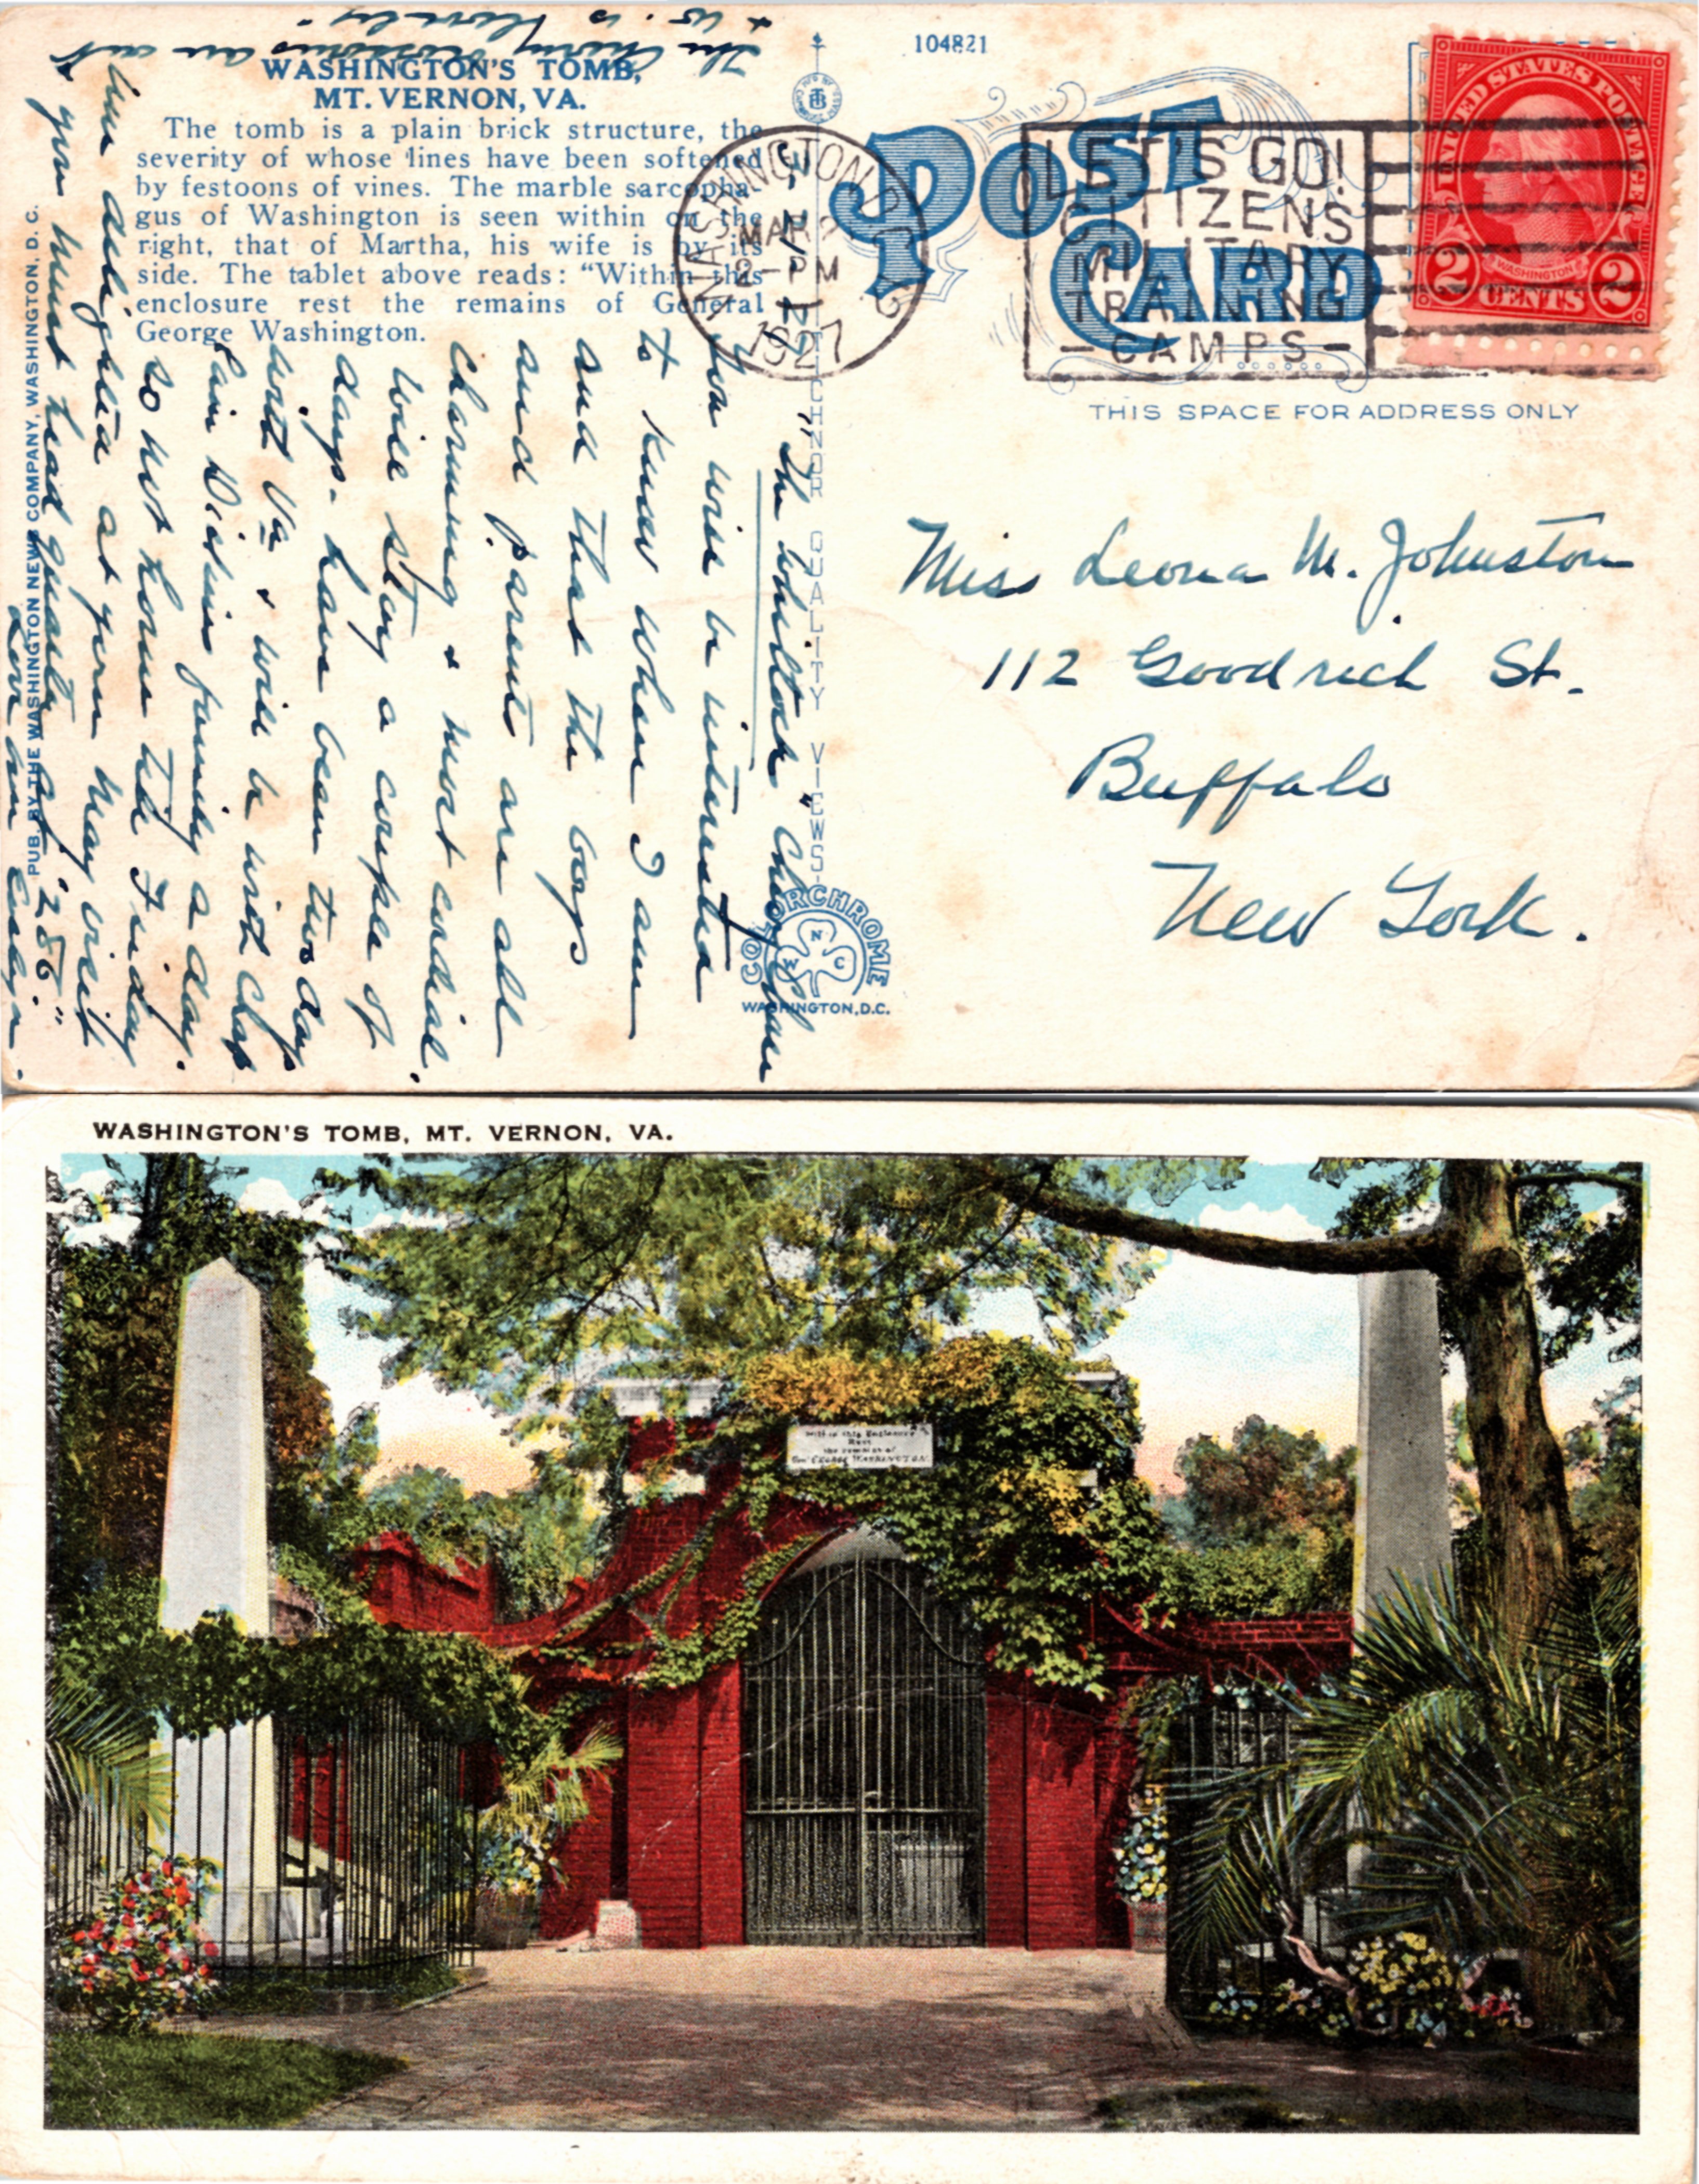 104821
WASHINGTON'S TOMB,
MT. VERNON, VA.
The tomb is a plain brick structure, the
severity of whose lines have been softened
by festoons of vines. The marble sarcopha-
gus of Washington is seen within on the
right, that of Martha, his wife is by its
side. The tablet above reads: "Within this
enclosure rest the remains of General
George Washington.
PUB. BY THE WASHINGTON NEWS COMPANY, WASHINGTON, D. C.
POST CARD
WASHINGTON, D.C.
MAR
2-PM
1927
LET'S GO!
CITIZENS
MILITARY
TRAINING
-CAMPS-
UNITED STATES POSTAGE
WASHINGTON
2 CENTS 2
THIS SPACE FOR ADDRESS ONLY
TICHNOR QUALITY VIEWS
COLORCHROME
N
W C
WASHINGTON, D.C.
Miss Leona M. Johnston
112 Goodrich St.
Buffalo
New York.
"The Whiltock" Chevy Chase
You will be interested
to know where I am
and that the boys
and parents are all
charming & most cordial.
Will stay a couple of
days. Have been two days
with Va & will be with
family a day.
So not home till Friday
delighted at your May visit
& you must head quarter at "286."
The cherry blossoms are out
& W. is lovely
WASHINGTON'S TOMB, MT. VERNON, VA.
Within this Enclosure
Rest
the remains of
Gen'l GEORGE WASHINGTON.